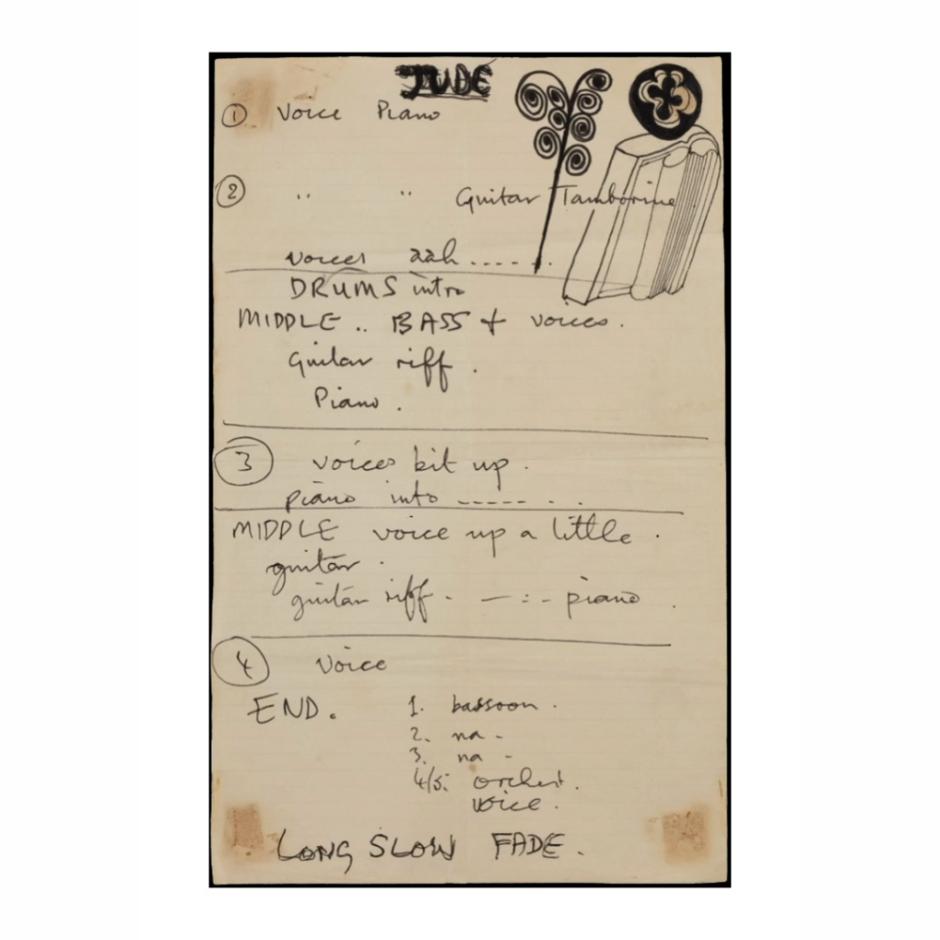 JUDE
① Voice Piano
② " " Guitar Tamborine
voices aah .......
DRUMS intro
MIDDLE .. BASS + voices.
Guitar riff.
Piano.
③ voices bit up.
piano into ----- . .
MIDDLE voice up a little.
guitar.
guitar riff. - —:- piano.
④ Voice
END. 1. bassoon.
2. na -
3. na -
4/5. orchest.
voice.
LONG SLOW FADE.